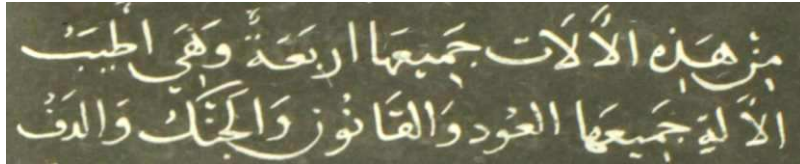 مِنْ هَذِهِ الْأَلَات جَمِيعهَا اربَعَةٌ وَهَي اطيَبُ
الأَلةِ جَمِيعهَا العُود وَالقَانُون وَالجَنَّك وَالدَفُ